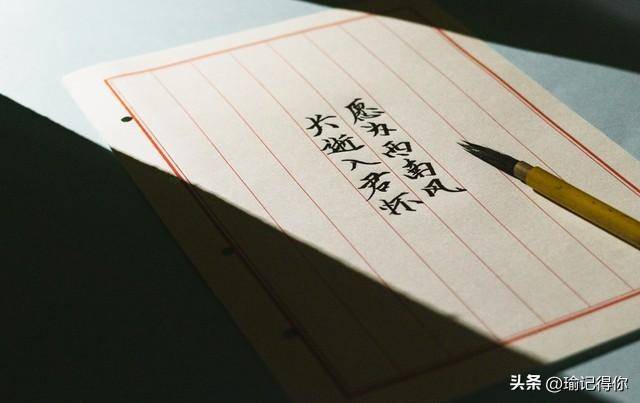 愿为西南风
长逝入君怀
头条 @瑜记得你